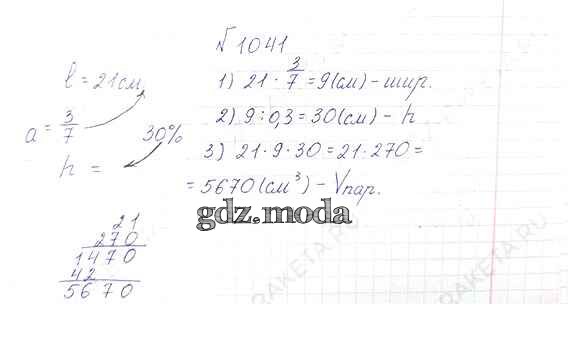 №1041
l = 21 см
a = 3/7
30%
h =
1) 21 · 3/7 = 9 (см) – шир.
2) 9 : 0,3 = 30 (см) – h
3) 21 · 9 · 30 = 21 · 270 =
= 5670 (см³) – Vпар.
gdz.moda
21
270
1470
42
5670
RAKETA.RU
RAKETA.RU